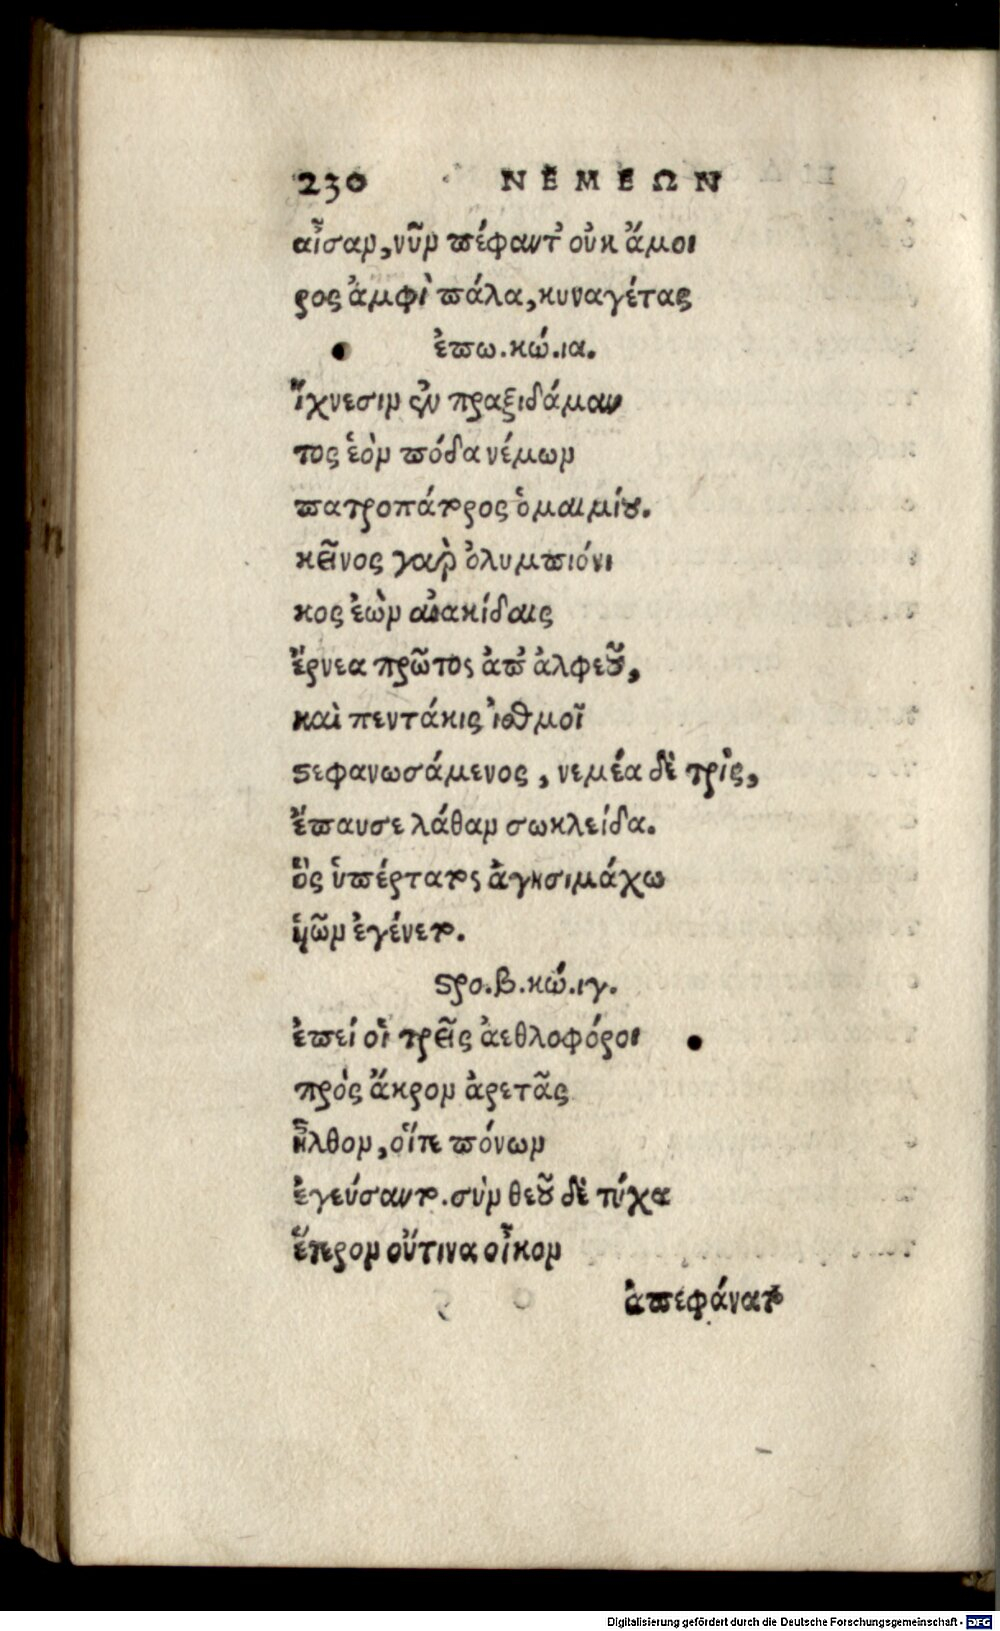 230 ΝΕΜΕΩΝ
αἶσαν, νῦν πέφαντ' οὐκ ἄμοι
ρος ἀμφὶ πάλα, κυναγέτας
ἐπω. κώ. ια.
ἴχνεσιν ἐν πραξιδάμαν
τος ἑὸν πόδα νέμων
πατροπάτορος ὁμαιμίου.
κεῖνος γὰρ ὀλυμπιόνι
κος ἐὼν αἰακίδαις
ἔρνεα πρῶτος ἀπ' ἀλφεοῦ,
καὶ πεντάκις ἰσθμοῖ
στεφανωσάμενος, νεμέα δὲ τρὶς,
ἔπαυσε λάθαν σωκλείδα.
ὃς ὑπέρτατος ἁγησιμάχω
ὑῶν ἐγένετο.
στρο. β. κώ. ιγ.
ἐπεί οἱ τρεῖς ἀεθλοφόροι
πρὸς ἄκρον ἀρετᾶς
ἦλθον, οἵτε πόνων
ἐγεύσαντο. σὺν θεοῦ δὲ τύχα
ἕτερον οὔτινα οἶκον
ἀπεφάνατο
Digitalisierung gefördert durch die Deutsche Forschungsgemeinschaft - DFG